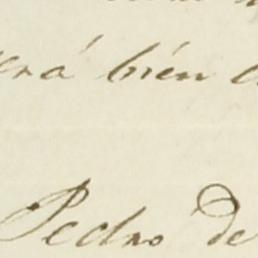 erá bién
Pedro de